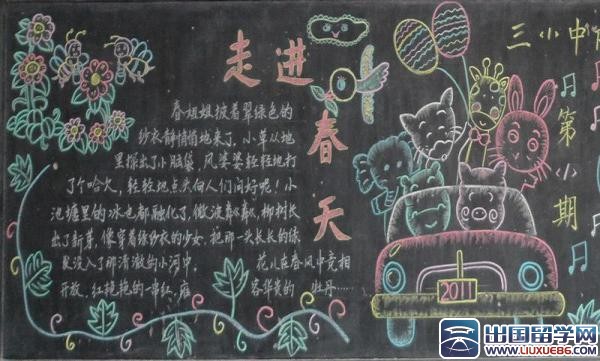 走进
春天
三小中
第小期
春姐姐披着翠绿色的
纱衣静悄悄地来了,小草从地
里探出了小脑袋,风婆婆轻轻地打
了个哈欠,轻轻地点头向人们问好呢!小
池塘里的冰也都融化了,微波粼粼,柳树长
出了新芽,像穿着绿纱衣的少女,把那一头长长的绿
发没入了那清澈的小河中, 花儿在春风中竞相
开放,红艳艳的一串红,雍 容华贵的 牡丹……
2011
出国留学网
WWW.LIUXUE86.COM